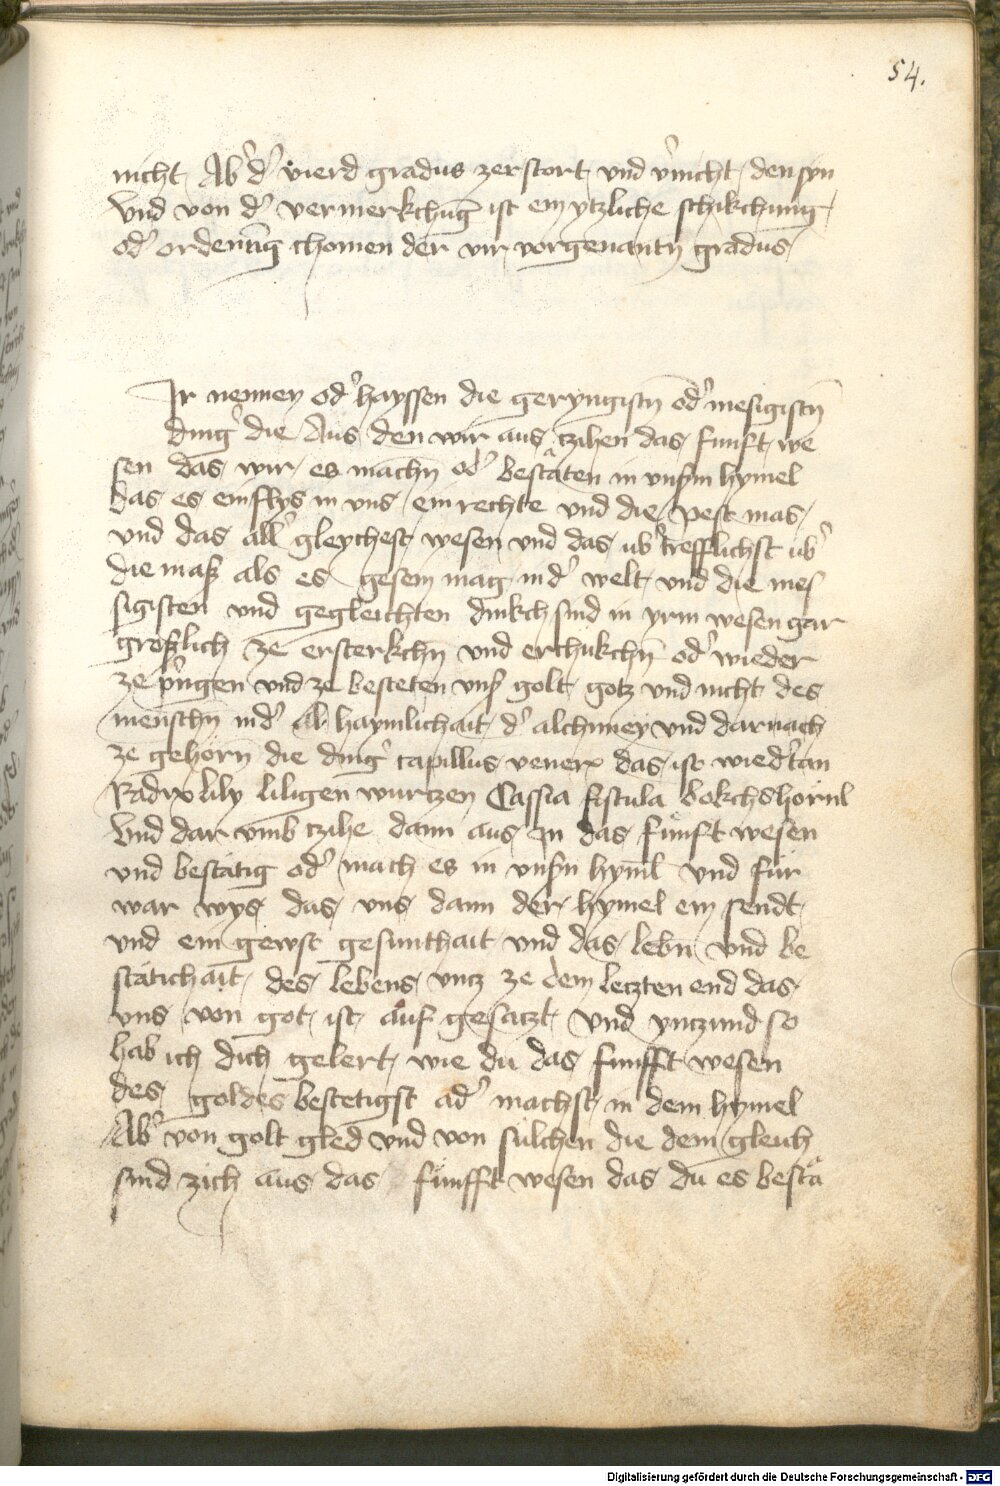 54.
nicht Ab᷑ d᷑ vierd gradus zerstort und v᷑nicht den syn
Vnd von d᷑ vermerkchūg ist ein ytzliche schikchung
od᷑ ordenūg chomen der vir vorgenantn̄ gradus
Ir nennen od᷑ hayssen die geryngistn̄ od᷑ mesigistn̄
ding᷑ die Aus den wir aus tzihen das funft we
sen das wir es machn̄ od᷑ bestäten in vnsm̄ hymel
das es einflys in vns ein rechte und die pest mas
und das all᷑ gleychest wesen und das ub᷑ trefflichst ub᷑
die maß als es gesein mag in d᷑ welt und die mes
sigisten und gegleichten dinkch sind in yrm wesen gar
größlich ze ersterkchn̄ und erchukchn̄ od᷑ wieder
ze p᷑ngen und ze besteten vns᷑ golt gotz und nicht des
menschn̄ in d᷑ haymlichait d᷑ alchimey und darnach
ze gehörn̄ die ding᷑ capillus vener᷑ das ist wied᷑tan
Radix lily liligen wurtzen Cassia fistula bokchshörnl
Vnd dar vmb tzihe dann aus in das fünft wesen
und bestätig od᷑ mach es in vnsm̄ hym̄l und für
war wys das uns dann der hymel ein sendt
und ein gewst gesunthait und das lebn̄ und be
stätichait des lebens vntz ze dem letzten end das
uns von got ist auf gesatzt Vnd yntzund so
hab ich dich gelert wie du das funfft wesen
des goldes bestetigst ad᷑ machst in dem hymel
Ab᷑ von golt gled und von sülchen die dem gleich
sind zich aus das fünfft wesen das du es bestä
Digitalisierung gefördert durch die Deutsche Forschungsgemeinschaft - DFG